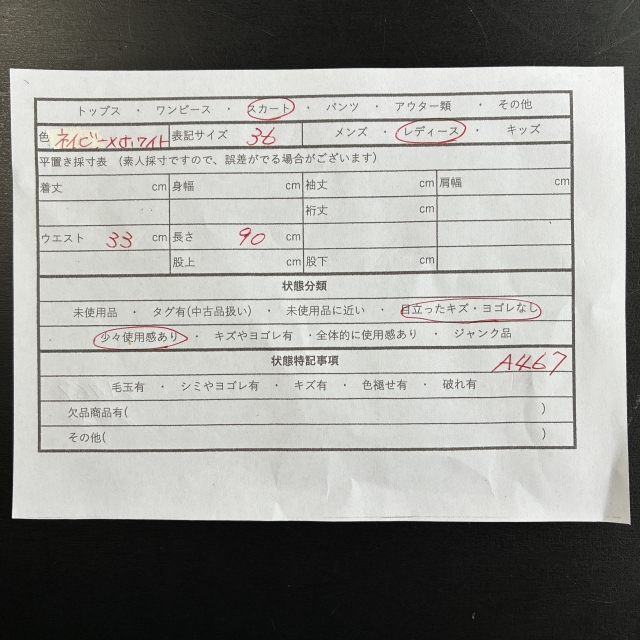 トップス ・ ワンピース ・ スカート ・ パンツ ・ アウター類 ・ その他
色 ネイビー×ホワイト 表記サイズ 36 メンズ ・ レディース ・ キッズ
平置き採寸表 (素人採寸ですので、誤差がでる場合がございます)
着丈 cm 身幅 cm 袖丈 cm 肩幅 cm
裄丈 cm
ウエスト 33 cm 長さ 90 cm
股上 cm 股下 cm
状態分類
未使用品 ・ タグ有(中古品扱い) ・ 未使用品に近い ・ 目立ったキズ・ヨゴレなし
少々使用感あり ・ キズやヨゴレ有 ・全体的に使用感あり ・ ジャンク品
状態特記事項 A467
毛玉有 ・ シミやヨゴレ有 ・ キズ有 ・ 色褪せ有 ・ 破れ有
欠品商品有( )
その他( )